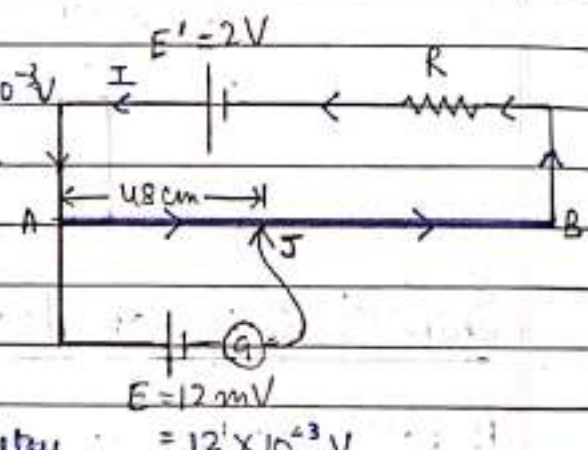 E' = 2V
R
I
0⁻³V
48 cm
A
B
J
G
E = 12 mV
= 12 × 10⁻³ V